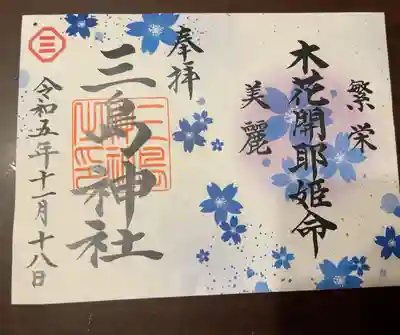 繁栄
木花開耶姫命
美麗
奉拝
三島神社
令和五年十一月十八日
三